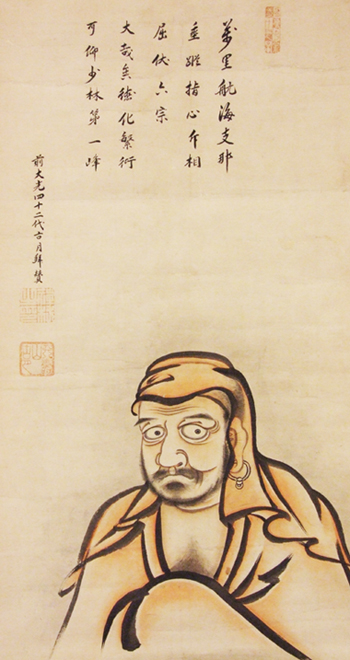 萬里航海支那
垂蹤指心斥相
屈伏六宗
大哉矣德化繁衍
可仰少林第一峰
前大光四十二代古月拜贊